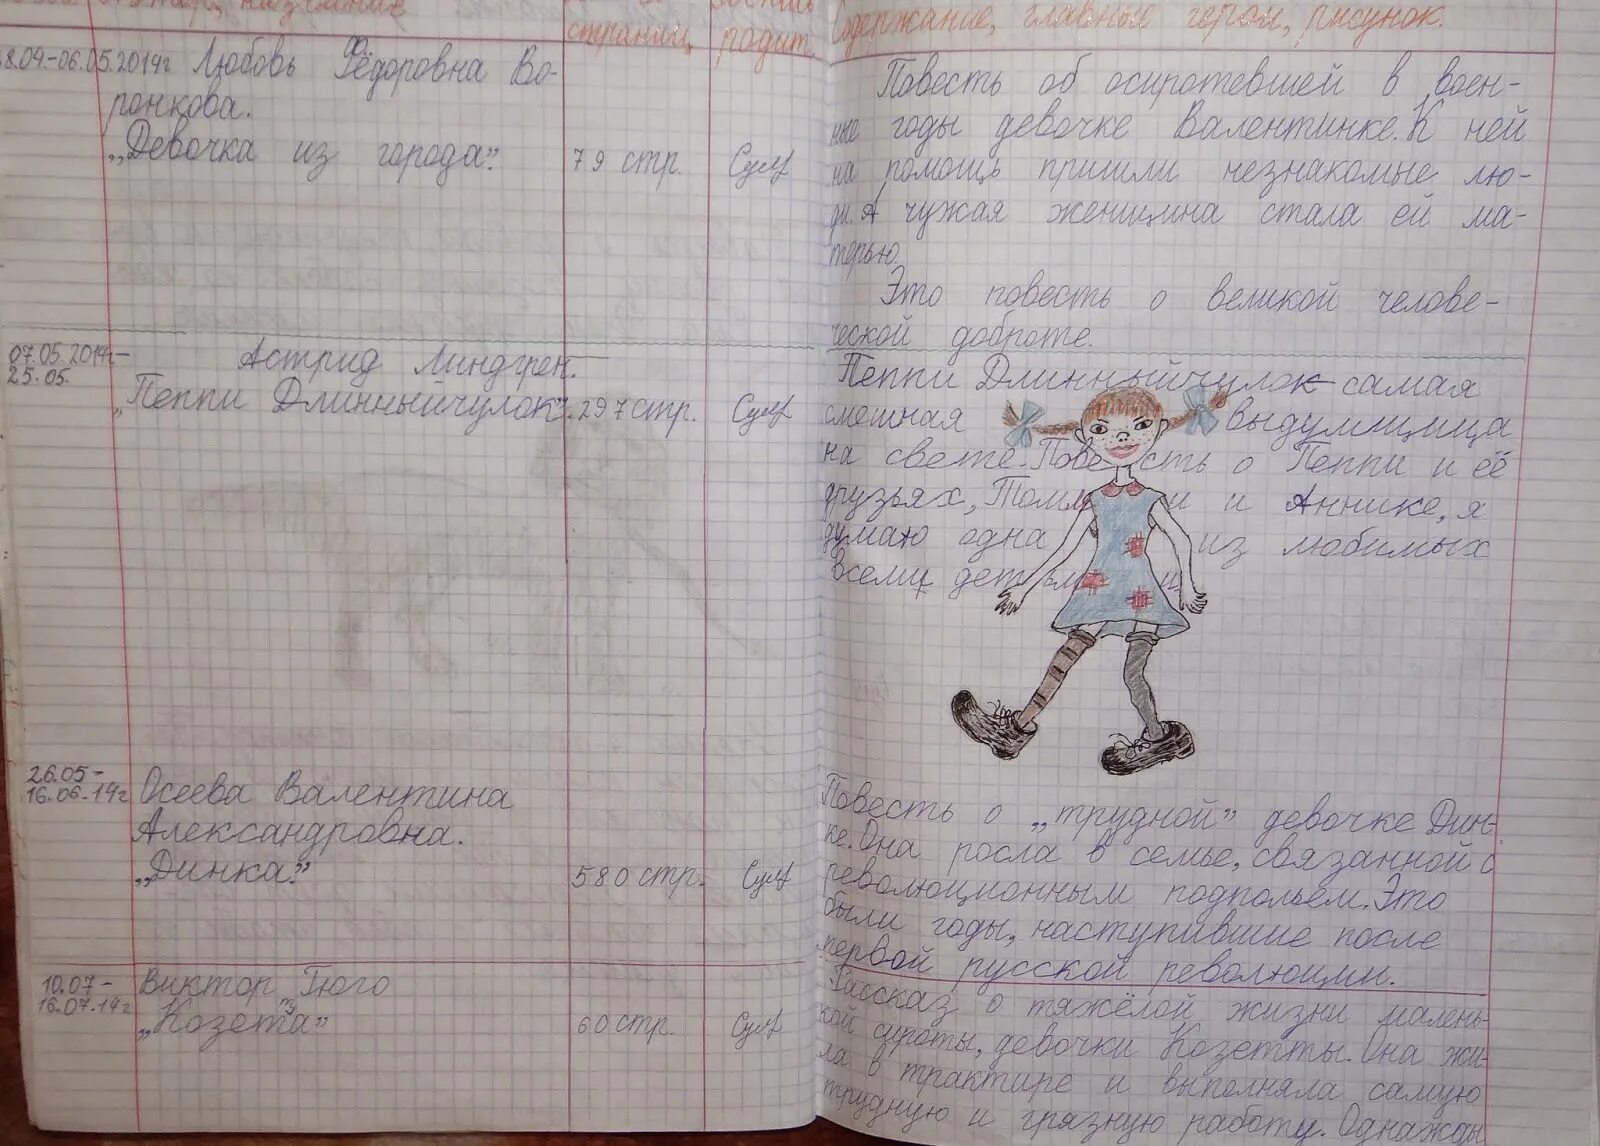 страниц
родит.
Содержание, главные герои, рисунок.
8.04.-06.05.2014г
Любовь Фёдоровна Во-
ронкова.
„Девочка из города".
79 стр.
Повесть об осиротевшей в воен-
ные годы девочке Валентинке. К ней
на помощь пришли незнакомые лю-
ди. А чужая женщина стала ей ма-
терью.
Это повесть о великой челове-
ческой доброте.
07.05.2014г-
25.05.
Астрид Линдгрен.
„Пеппи Длинныйчулок".
297 стр.
Пеппи Длинныйчулок самая
смешная выдумщица
на свете. Повесть о Пеппи и её
друзьях, Томми и Аннике, я
думаю одна из любимых
всеми детьми
26.05-
16.06.14г
Осеева Валентина
Александровна.
„Динка".
580 стр.
Повесть о „трудной" девочке Дин-
ке. Она росла в семье, связанной с
революционным подпольем. Это
были годы, наступившие после
первой русской революции.
10.07-
16.07.14г
Виктор Гюго
„Козетта"
60 стр.
Рассказ о тяжёлой жизни малень-
кой сироты, девочки Козетты. Она жи-
ла в трактире и выполняла самую
трудную и грязную работу. Однажды